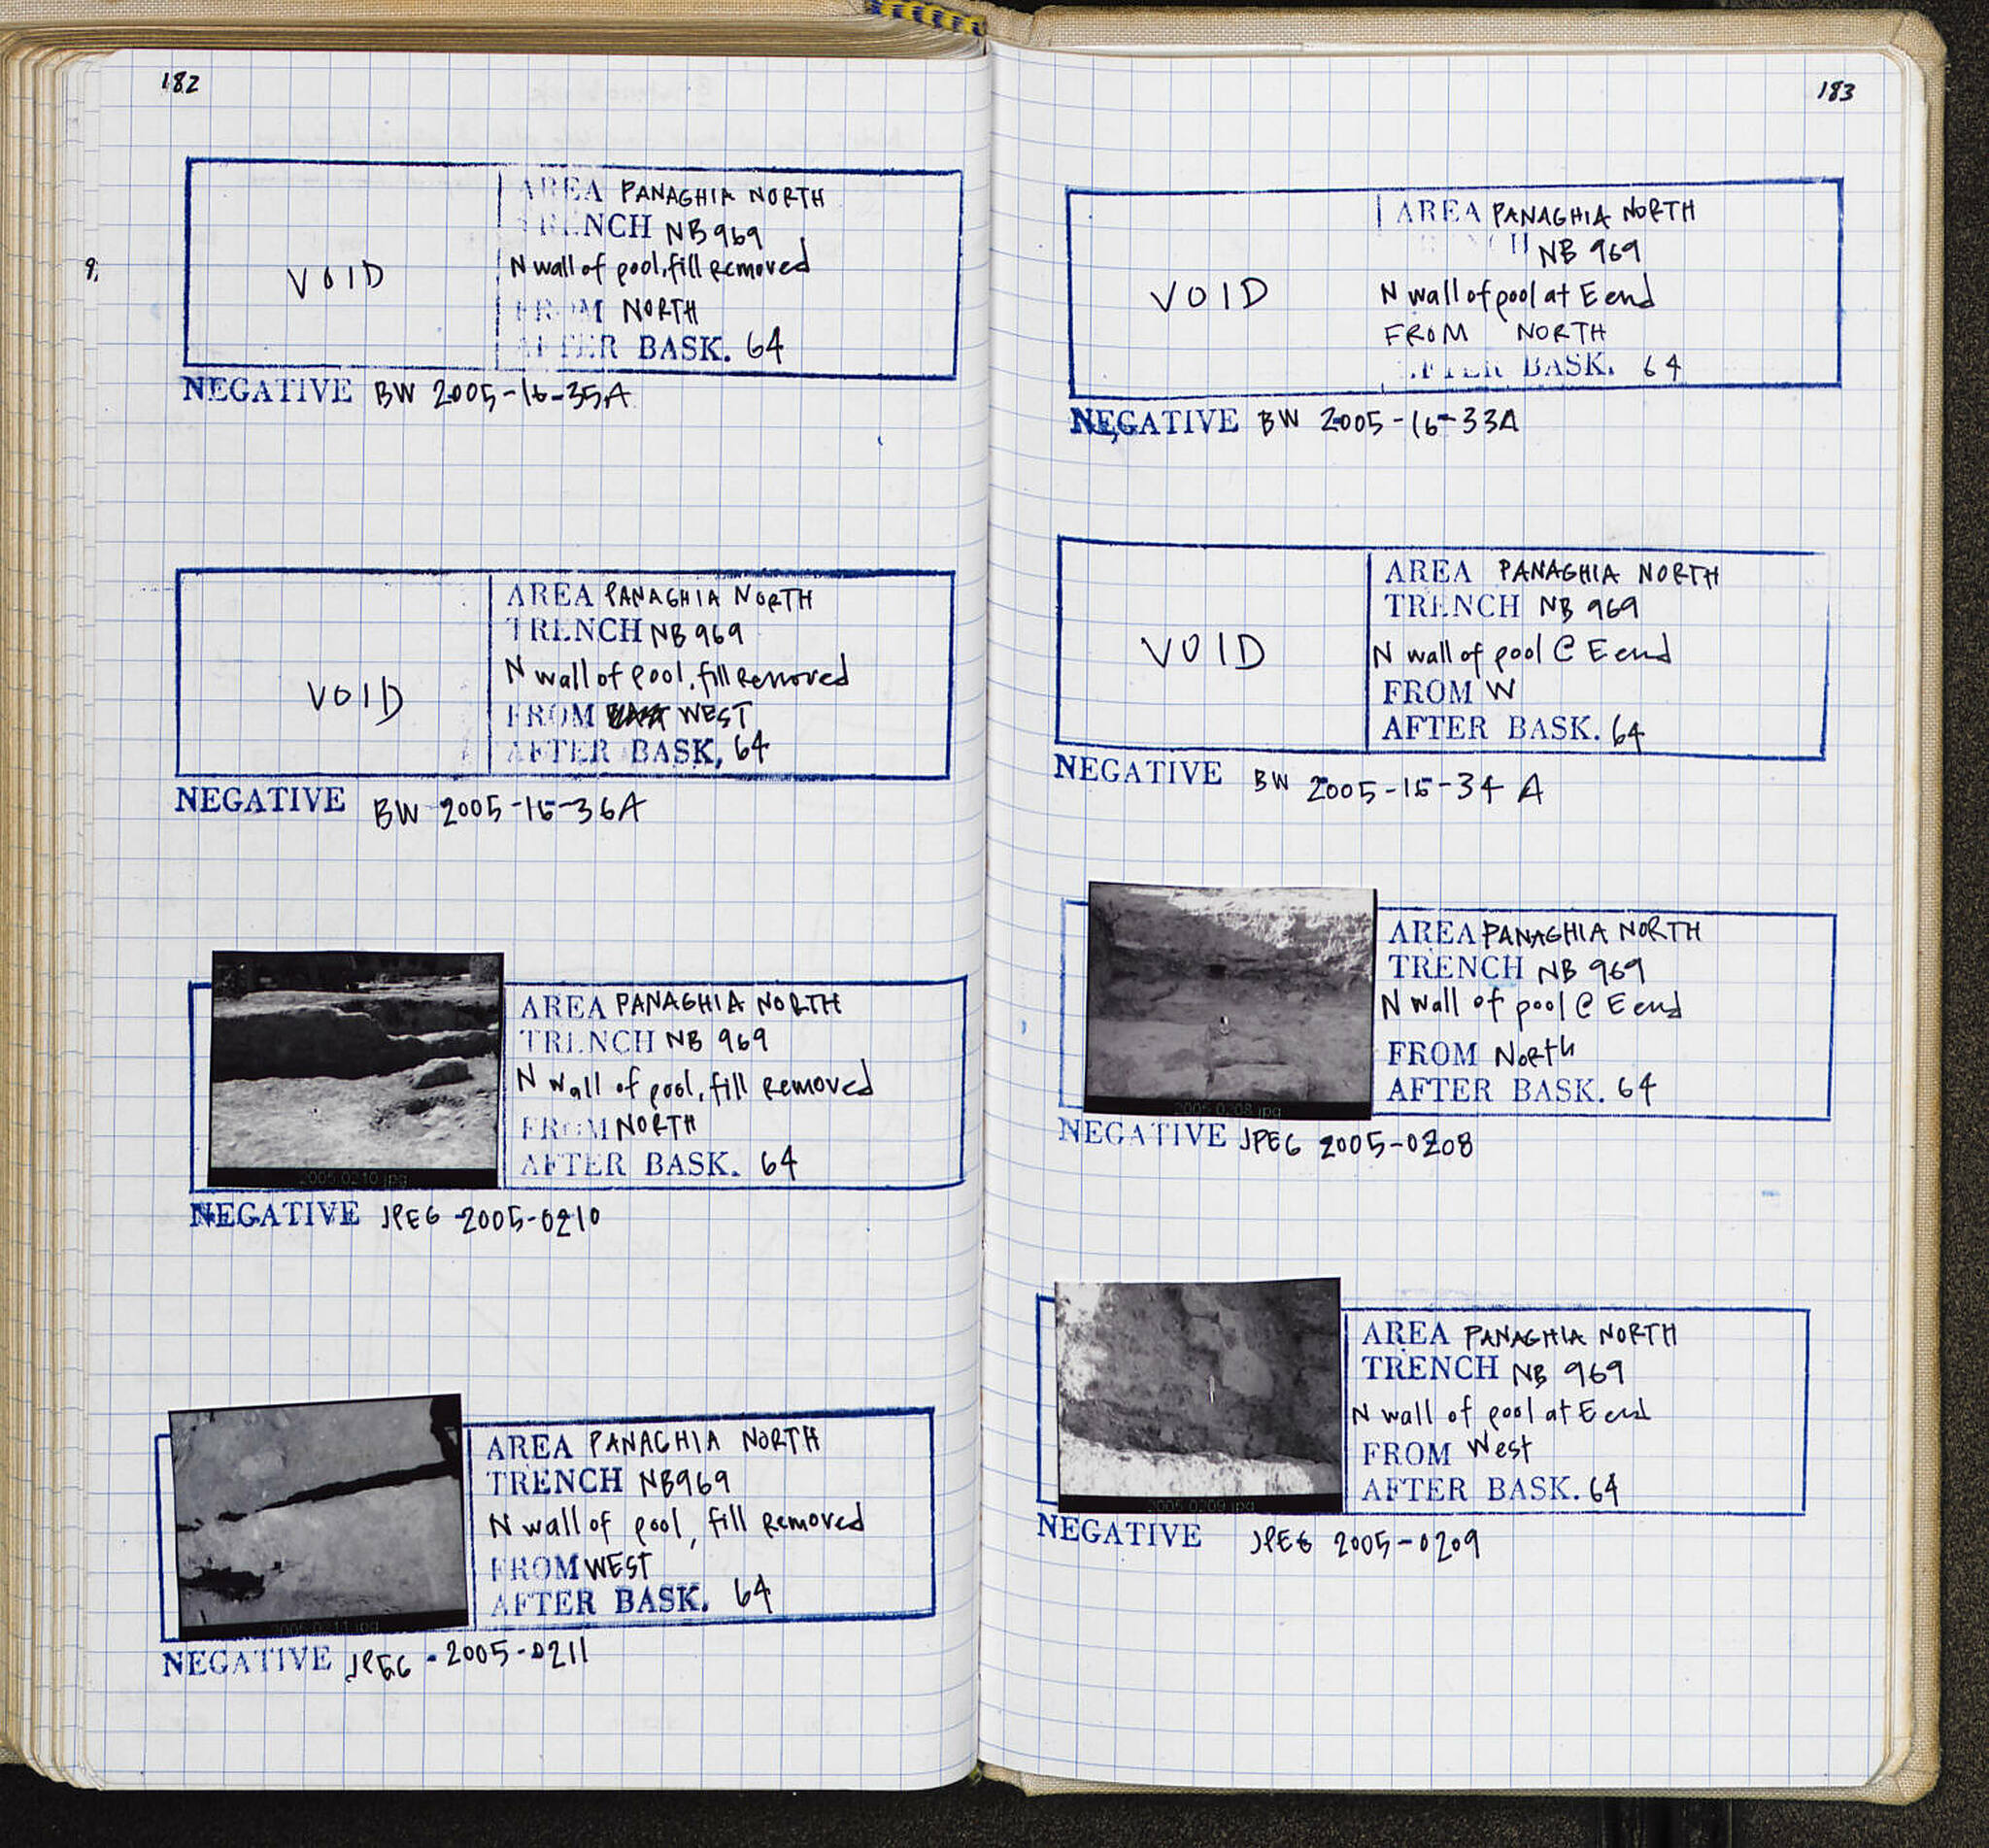 182
VOID
AREA PANAGHIA NORTH
TRENCH NB 969
N wall of pool, fill Removed
FROM NORTH
AFTER BASK. 64
NEGATIVE BW 2005-16-35A
VOID
AREA PANAGHIA NORTH
TRENCH NB 969
N wall of pool, fill Removed
FROM WEST
AFTER BASK. 64
NEGATIVE BW 2005-16-36A
AREA PANAGHIA NORTH
TRENCH NB 969
N wall of pool, fill Removed
FROM NORTH
AFTER BASK. 64
2005-0210.jpg
NEGATIVE JPEG 2005-0210
AREA PANAGHIA NORTH
TRENCH NB969
N wall of pool, fill Removed
FROM WEST
AFTER BASK. 64
2005-0211.jpg
NEGATIVE JPEG - 2005-0211
183
VOID
AREA PANAGHIA NORTH
TRENCH NB 969
N wall of pool at E end
FROM NORTH
AFTER BASK. 64
NEGATIVE BW 2005-16-33A
VOID
AREA PANAGHIA NORTH
TRENCH NB 969
N wall of pool @ E end
FROM W
AFTER BASK. 64
NEGATIVE BW 2005-16-34A
AREA PANAGHIA NORTH
TRENCH NB 969
N wall of pool @ E end
FROM North
AFTER BASK. 64
2005-0208.jpg
NEGATIVE JPEG 2005-0208
AREA PANAGHIA NORTH
TRENCH NB 969
N wall of pool at E end
FROM West
AFTER BASK. 64
2005-0209.jpg
NEGATIVE JPEG 2005-0209